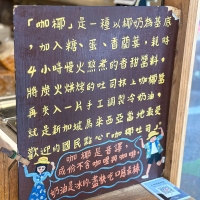 「咖椰」是一種以椰奶為基底
,加入糖、蛋、香蘭葉,耗時
4小時慢火熬煮的香甜醬料,
將炭火烘烤的吐司抹上咖椰醬
再夾入一片手工調製冷奶油,
就是新加坡馬來西亞當地最受
歡迎的國民點心「咖椰吐司」
咖椰是音譯,
成份不含咖哩和咖啡,
奶油是冰的